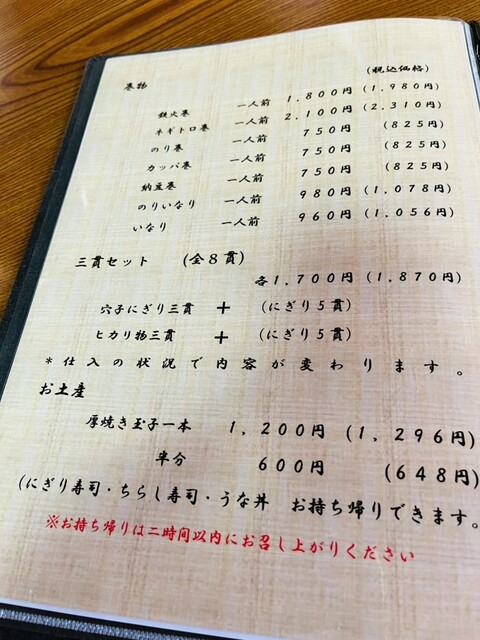 (税込価格)
巻物
鉄火巻 一人前 1,800円 (1,980円)
ネギトロ巻 一人前 2,100円 (2,310円)
のり巻 一人前 750円 (825円)
カッパ巻 一人前 750円 (825円)
納豆巻 一人前 750円 (825円)
のりいなり 一人前 980円 (1,078円)
いなり 一人前 960円 (1,056円)
三貫セット (全8貫)
各1,700円 (1,870円)
穴子にぎり三貫 + (にぎり5貫)
ヒカリ物三貫 + (にぎり5貫)
*仕入の状況で内容が変わります。
お土産
厚焼き玉子一本 1,200円 (1,296円)
半分 600円 (648円)
(にぎり寿司・ちらし寿司・うな丼 お持ち帰りできます。
※お持ち帰りは二時間以内にお召し上がりください